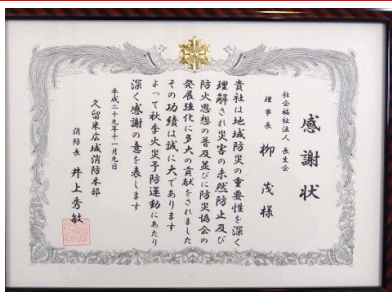 感謝状
社会福祉法人 長生会
理事長 柳 茂 様
貴社は地域防災の重要性を深く
理解され災害の未然防止及び
防火思想の普及並びに防災協会の
発展強化に多大の貢献をされました
その功績は誠に大であります
よって秋季火災予防運動にあたり
深く感謝の意を表します
平成二十九年十一月九日
久留米広域消防本部
消防長 井上秀敏